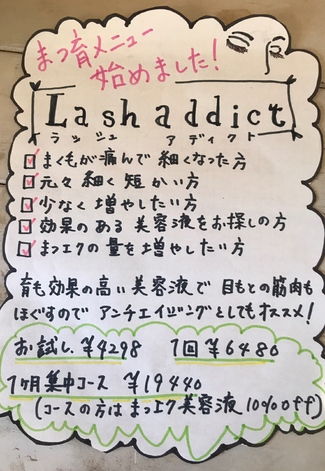 まつ育メニュー
始めました!
Lash addict
ラッシュ アディクト
まつもが痛んで細くなった方
元々細く短かい方
少なく増やしたい方
効果のある美容液をお探しの方
まつエクの量を増やしたい方
育も効果の高い美容液で目もとの筋肉も
ほぐすのでアンチエイジングとしてもオススメ!
お試し ¥4298 1回 ¥6480
1ヶ月集中コース ¥19440
(コースの方はまつエク美容液10%off)